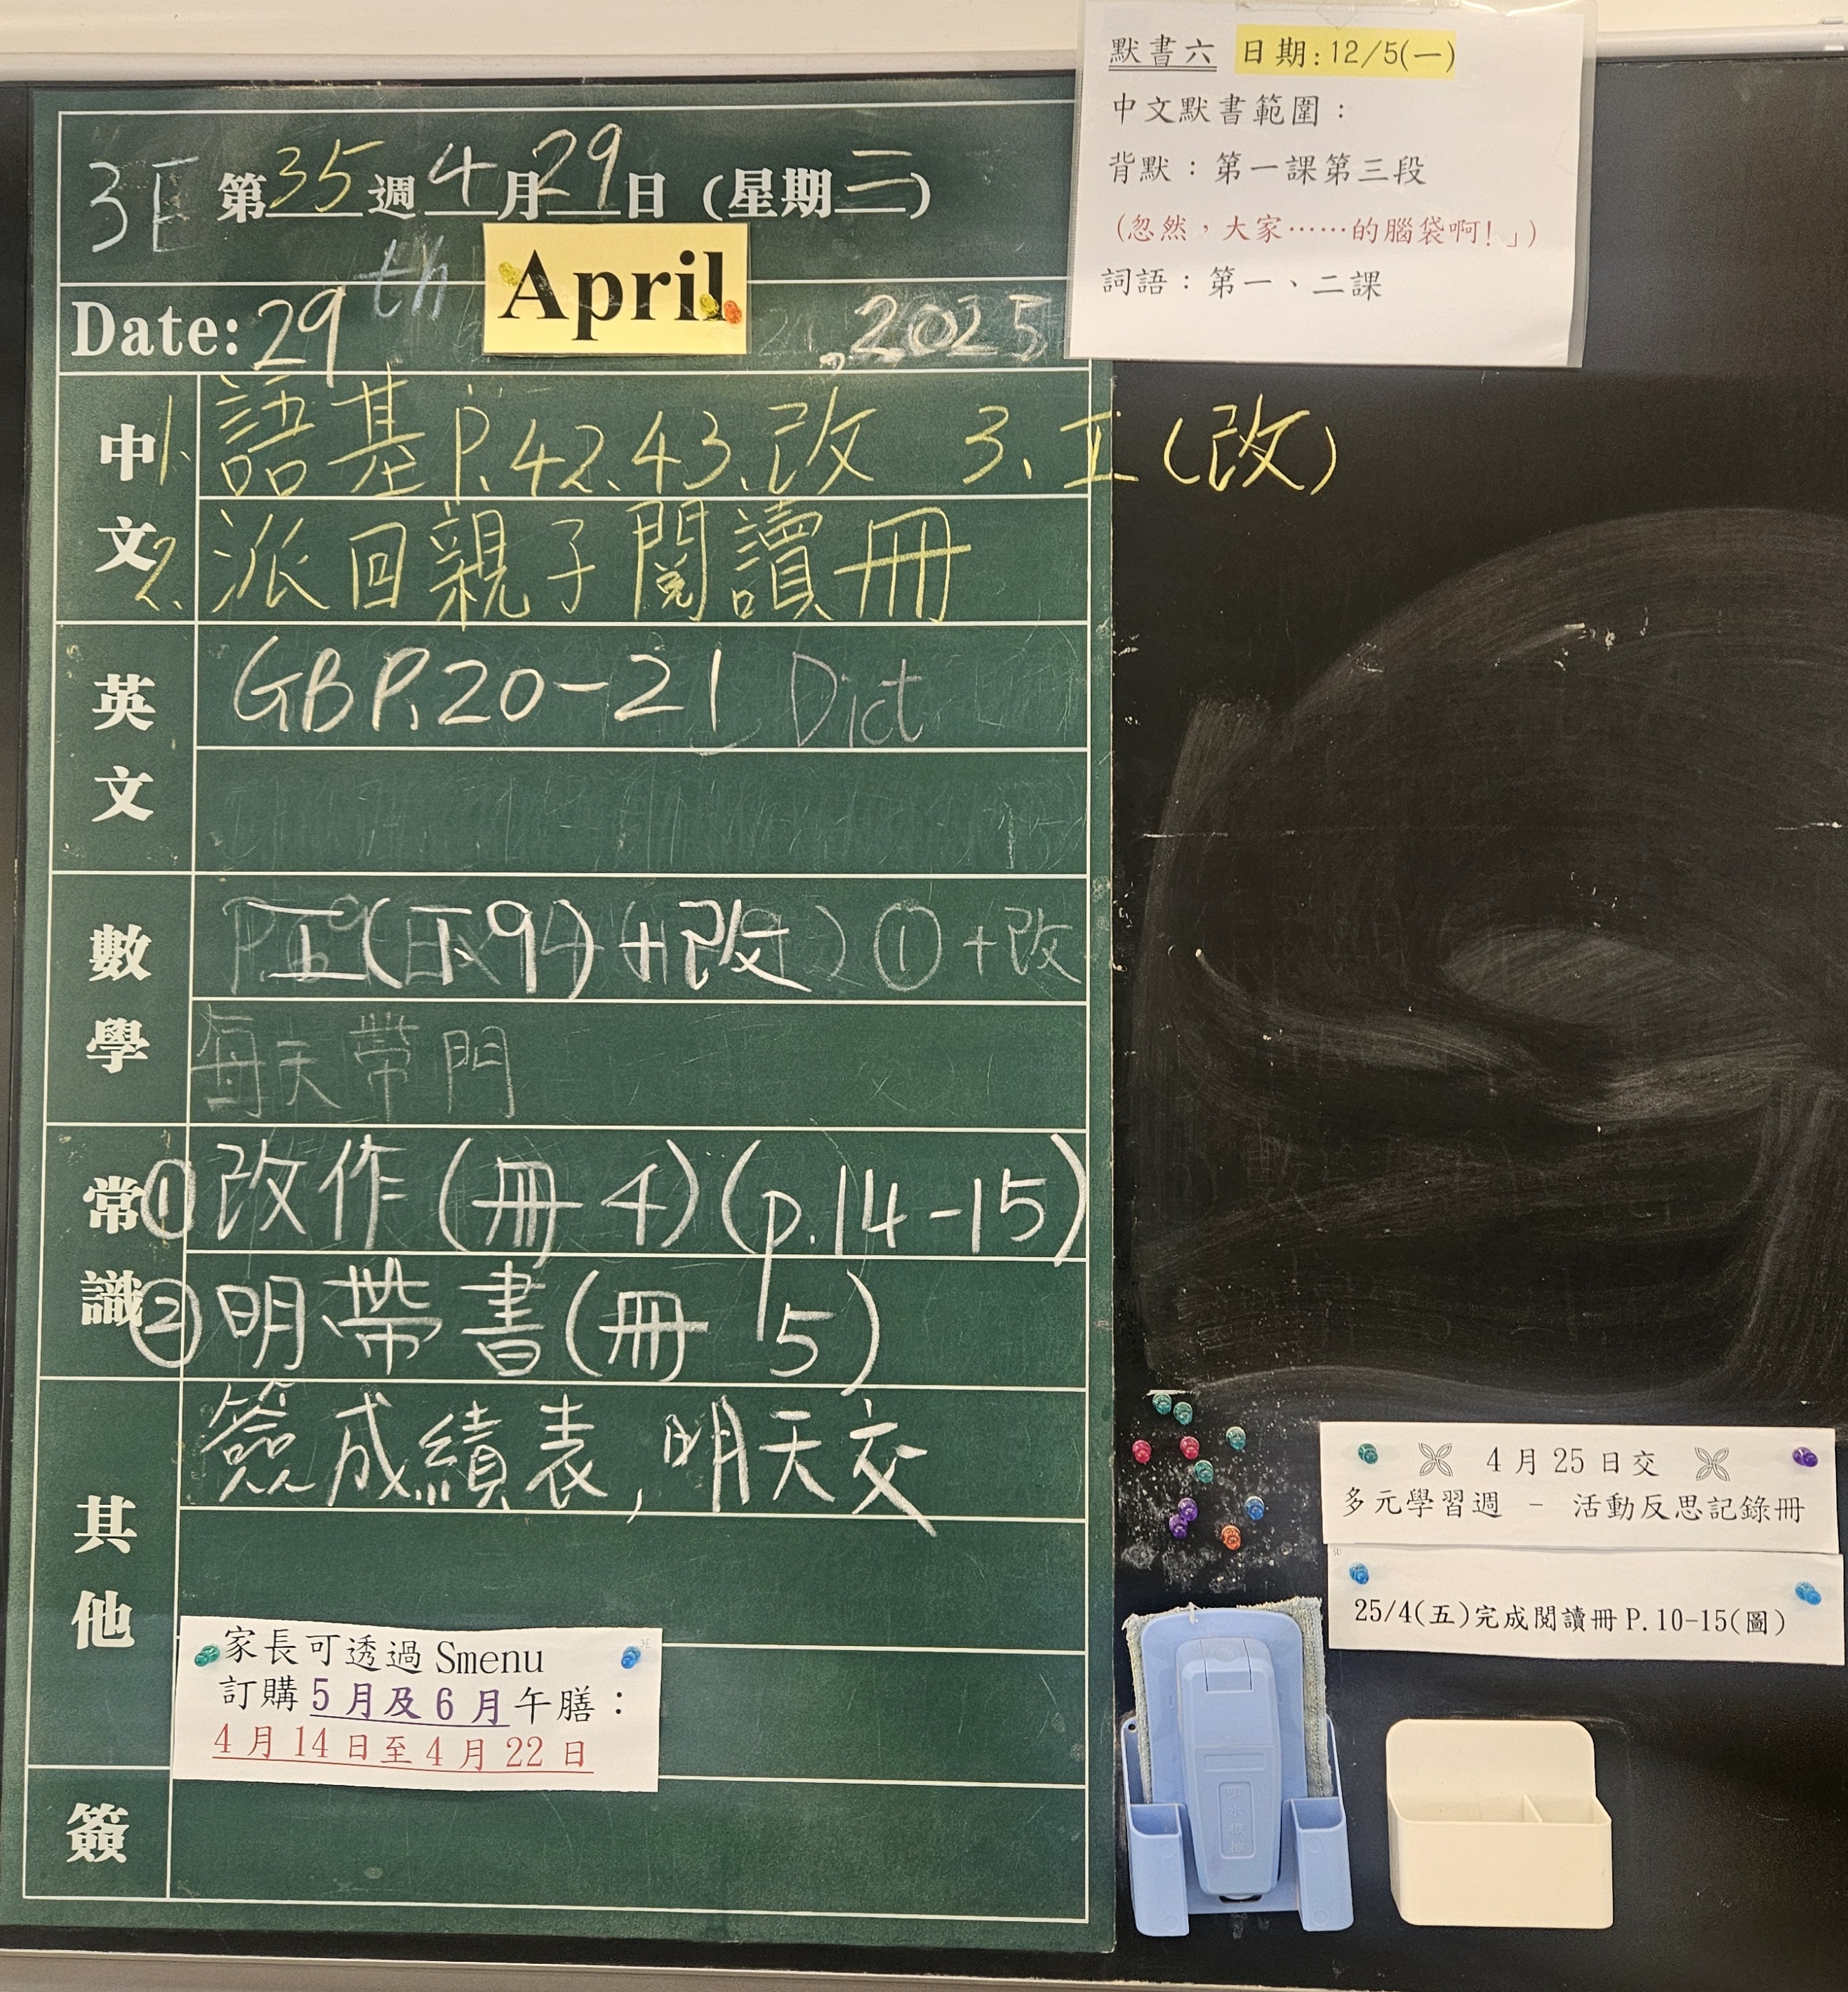 3E 第35週4月29日（星期二）
Date: 29th April, 2025
默書六 日期:12/5(一)
中文默書範圍：
背默：第一課第三段
（忽然，大家……的腦袋啊！」）
詞語：第一、二課
中文
1. 語基P.42、43、改 3、工（改）
2. 派回親子閱讀冊
英文
GB P.20-21 Dict
數學
工(下9)+改 ① +改
每天帶門
常識
① 改作(冊4)(p.14-15)
② 明帶書(冊5)
其他
簽成績表，明天交
家長可透過 Smenu
訂購5月及6月午膳：
4月14日至4月22日
簽
4月25日交
多元學習週 - 活動反思記錄冊
25/4(五)完成閱讀冊P.10-15(圖)